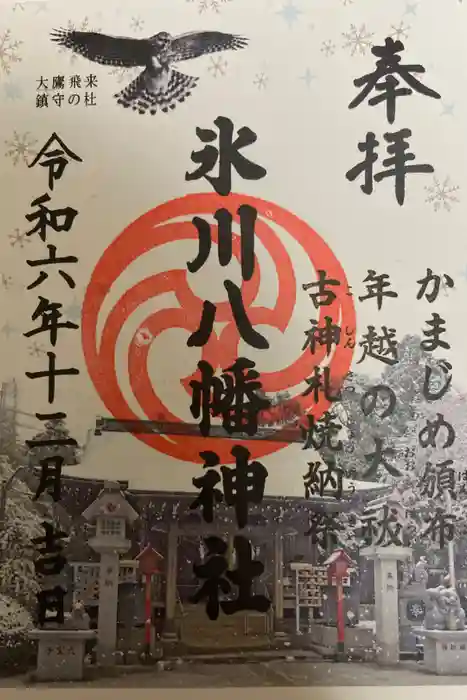 奉拝
かまじめ頒布
年越の大祓
古神札焼納祭
氷川八幡神社
大鷹飛来
鎮守の杜
令和六年十二月吉日